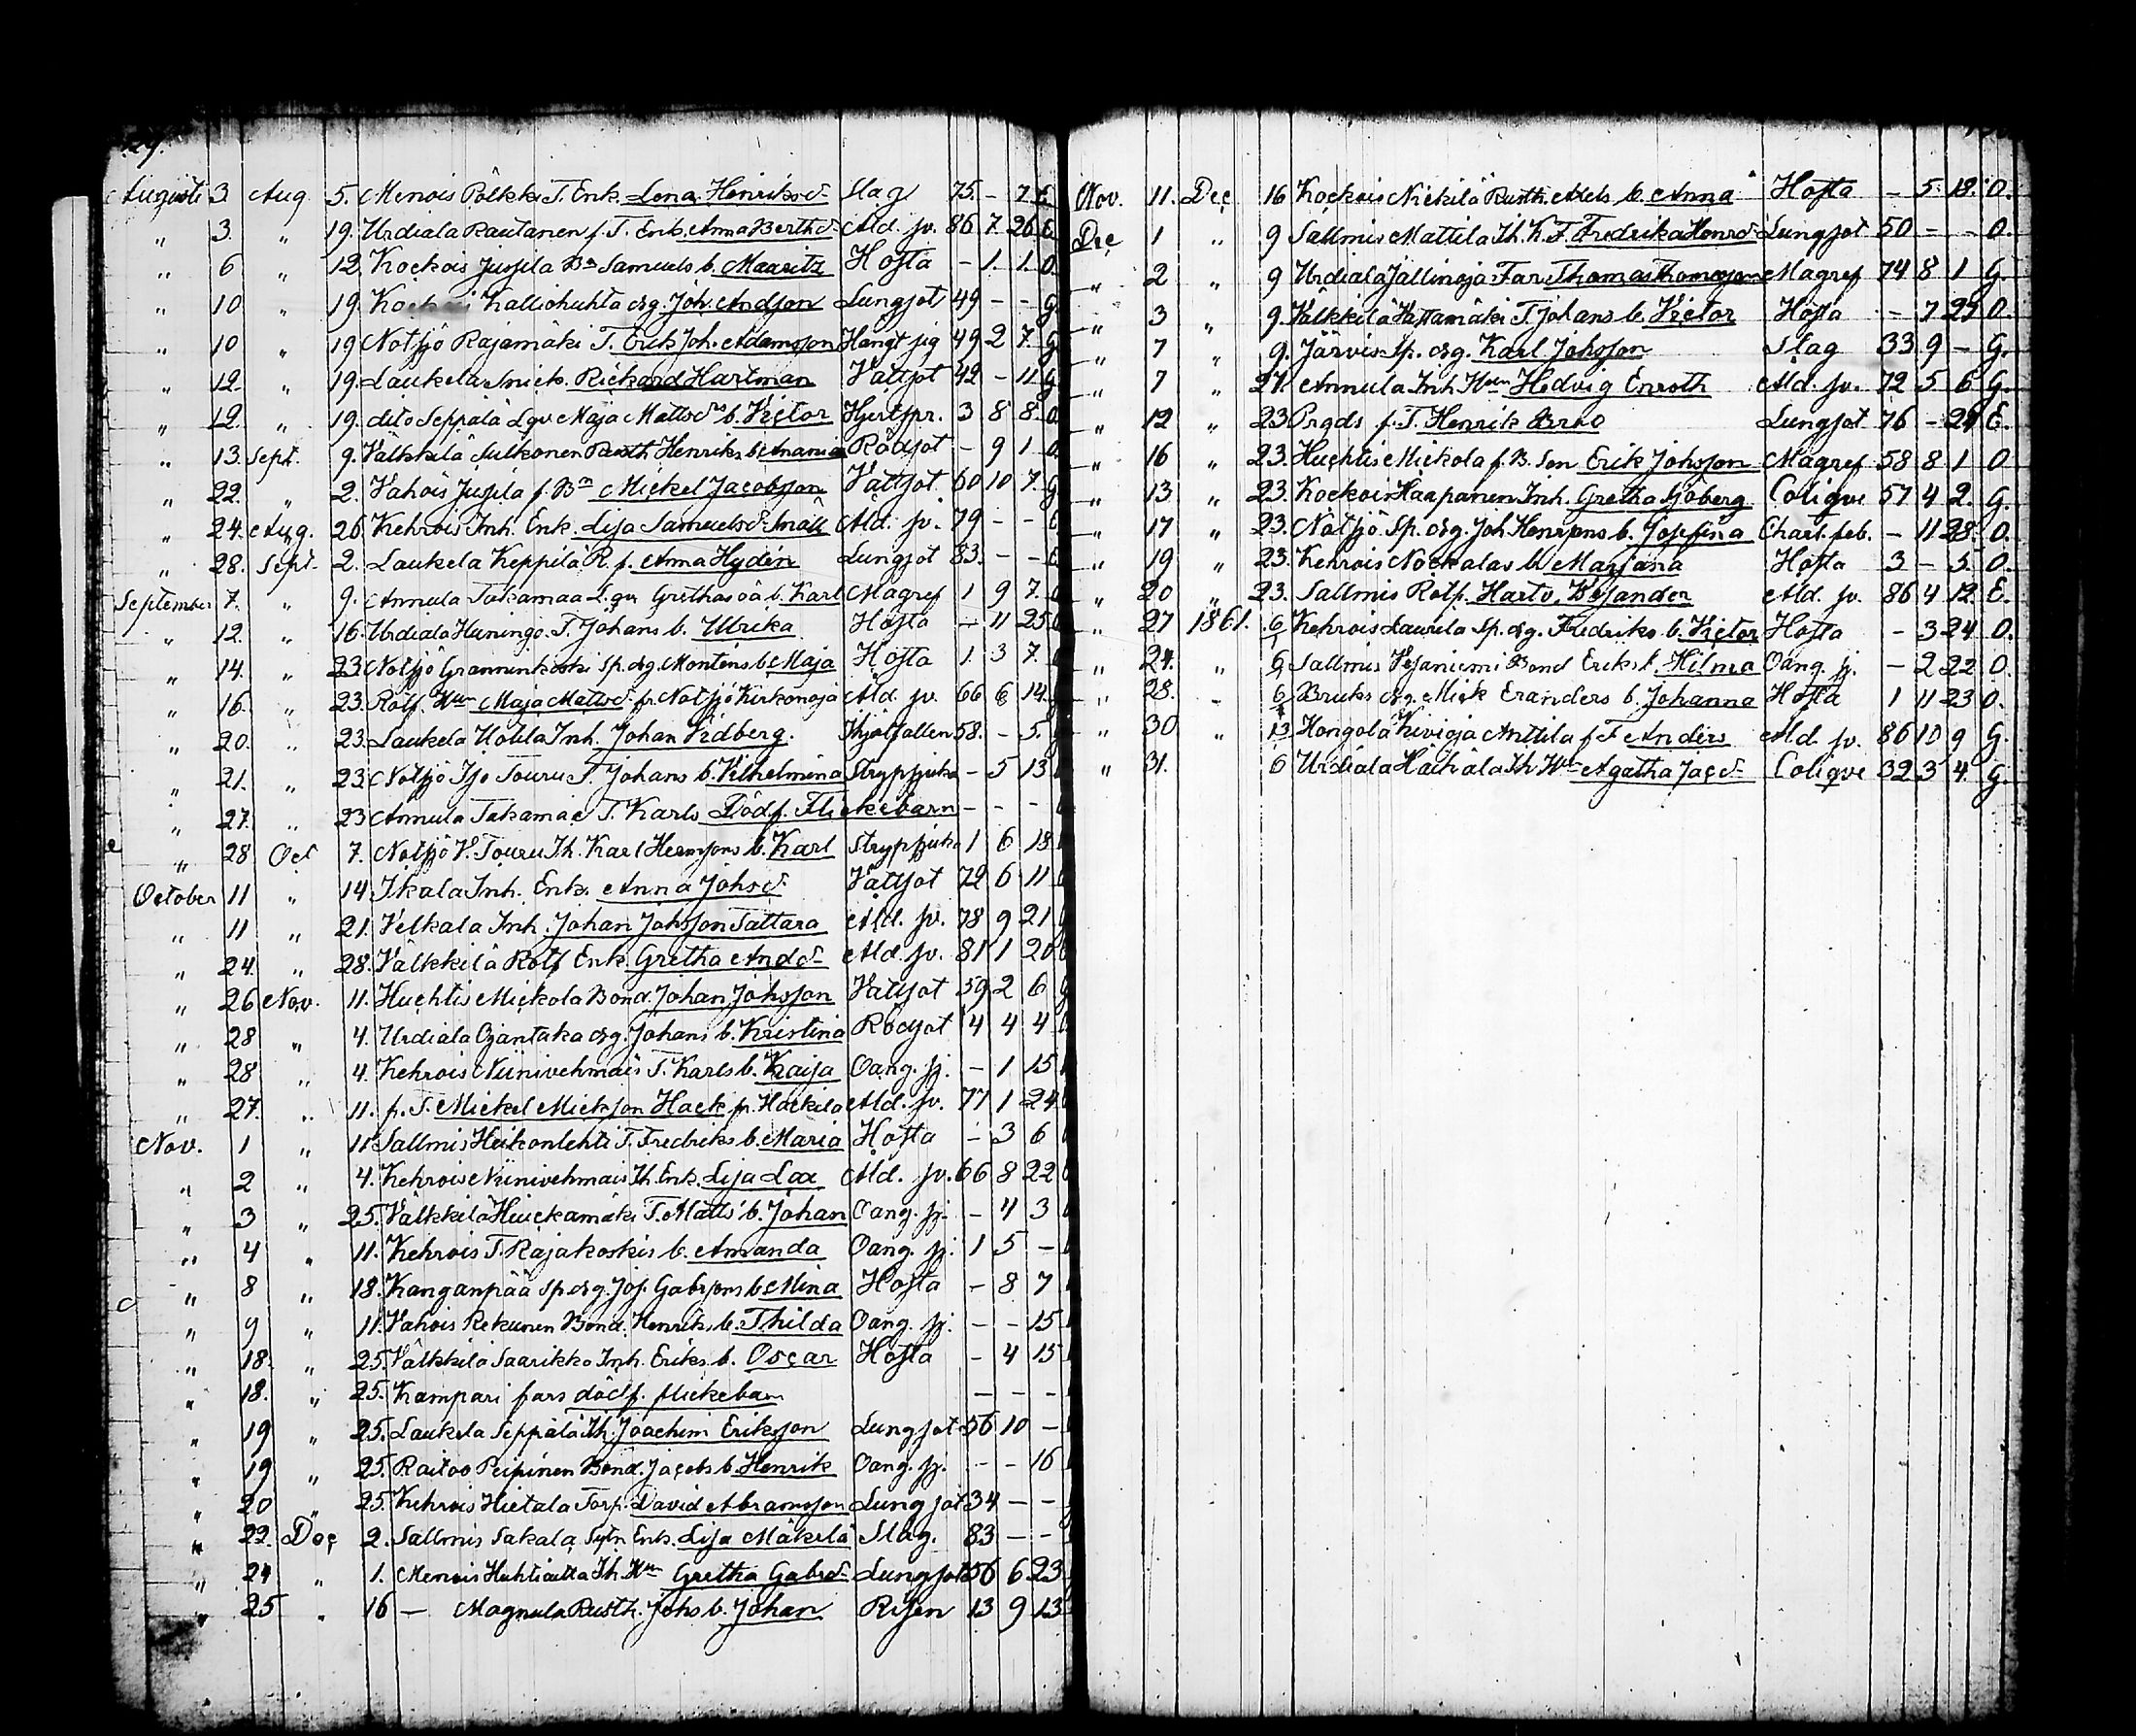 129.
Augusti 3 Aug 5. Menois Pölkki T. Enk. Lena Henriksdr Slag 75. - 7. E.
" 3. " 19. Urdiala Rautanen f. T. Enk. Anna Berthdr Åld. sv. 86 7 26 E.
" 6 " 12. Kockois Jussila Bn Samuels b. Maarits Hosta - 1. 1. O.
" 10. " 19. Kalliohuhta drg. Joh. Andsson Lungsot 49 - - G
" 10 " 19 Notsjö Rajamäki T. Erik Joh. Adamsson Hängt sig 49 2 7. G
" 12. " 19. Laukela Snick. Rickard Hartman Vattsot 42 - 11 G
" 12. " 19. dito Seppälä Lgv Maja Mattsdrs b. Victor Hjertspr. 3 8 8. O.
" 13. Sept. 9. Välkkilä Sulkonen Rusth Henriks b. Anania Rödsot - 9 1 O.
" 22. " 2. Vahois Jussila f. Bn Mickel Jacobsson Vattsot 60 10 7. G
" 24. Aug. 26 Kehrois Inh. Enk. Lisa Samuelsdr Snäll Åld. sv. 79 - - E
" 28. Sept. 2. Laukela Keppilä R. f. Anna Hydén Lungsot 83. - - E
September 7. " 9. Annula Takamaa L. qv Grethas oä b. Karl Magref 1 9 7.
" 12. " 16. Urdiala Huningo. T. Johans b. Ulrika Hosta - 11 25
" 14. " 23. Notsjö Grannenkoski Sp. drg. Monténs b. Maja Hosta 1. 3 7.
" 16. " 23. Rotf. Hn Maja Mattsdr fr. Notsjö Kirkonoja Åld. sv. 66 6 14.
" 20. " 23. Laukela Uotila Inh. Johan Vidberg. Ihjälfallen 58. - 5.
" 21. " 23. Notsjö Iso Touru T. Johans b. Vilhelmina Strypsjuka - 5 13
" 27. " 23 Annula Takamaa T. Karls Dödf. Flickebarn - - -
" 28 Oct 7. Notsjö V. Touru Th. Karl Hermsons b. Karl Strypsjuka 1 6 18
October 11 " 14. Ikala Inh. Enk. Anna Johsdr Vattsot 72 6 11
" 11 " 21. Velkala Inh. Johan Johsson Tattara Åld. sv. 78 9 21
" 24. " 28. Välkkilä Rotf Enk. Gretha Anddr Åld. sv. 81 1 20
" 26 Nov. 11. Huchtis Mickola Bond. Johan Johsson Vattsot 59 2 6 G
" 28 " 4. Urdiala Ojantaka drg. Johans b. Kristina Rödsot 4 4 4
" 28 " 4. Kehrois Niinivehmais T. Karls b. Kaija Oang. sj. - 1 15
" 27. " 11. f. S. Mickel Mickson Hack fr. Hackila Åld. sv. 77 1 24
Nov. 1 " 11 Sallmis Heikonlehti T. Fredriks b. Maria Hosta - 3 6
" 2 " 4. Kehrois Niinivehmais Th. Enk. Lisa Lax Åld. sv. 66 8 22
" 3 " 25. Välkkilä Hiuckamäki T. Matts b. Johan Oang. sj. - 4 3
" 4 " 11. Kehrois T. Rajakoskis b. Amanda Oang. sj. 1 5 -
" 8 " 18. Kanganpää Sp. drg. Jos. Gabrsons b. Mina Hosta - 8 7
" 9 " 11. Vahois Rekunen Bond. Henriks b. Thilda Oang. sj. - - 15
" 18. " 25. Välkkilä Saarikko Inh. Eriks b. Oscar Hosta - 4 15
" 18. " 25. Kampari fars dödf. flickebarn - - -
" 19 " 25. Laukela Seppälä Th. Joachim Eriksson Lungsot 56 10 -
" 19 " 25. Raitoo Peipinen Bond. Jacobs b. Henrik Oang. sj. - - 16
" 20 " 25. Kehrois Hietala Torp. David Abramsson Lungsot 34 - -
" 22. Dec 2. Sallmis Sakala Sytn. Enk. Lisa Mäkelä Slag. 83 - -
" 24 " 1. Menois Huhtiaitta Th. Hn Gretha Gabrdr Lungsot 56 6 23
" 25 " 16 - Magnula Rusth. Johs b. Johan Risen 13 9 13
Nov. 11. Dec 16 Kockois Nickilä Rusth. Axels b. Anna Hosta - 5. 18. O.
Dec 1 " 9 Sallmis Mattila Th. K. F. Fredrika Henrdr Lungsot 50 - - O.
" 2 " 9 Urdiala Jallinoja Far. Thomas Thomasson Magref 74 8 1 G.
" 3 " 9. Välkkilä Hassamäki T. Johans b. Victor Hosta - 7 29 O.
" 7 " 9. Järvis Sp. drg. Karl Johsson Slag 33 9 - G.
" 7 " 27. Annula Inh. Hn Hedvig Enroth Åld. sv. 72 5 6 G.
" 12 " 23 Prgds f. T. Henrik Brio Lungsot 76 - 29 E.
" 16 " 23. Huchtis Mickola f. B. Son Erik Johsson Magref 58 8 1 O
" 13 " 23. Kockois Haapanen Inh. Gretha Sjöberg Colique 57 4 2. G.
" 17 " 23. Notsjö Sp. drg. Joh. Henrsons b. Josefina Charl. feb. - 11 28. O.
" 19 " 23. Kehrois Nockalas b. Marjana Hosta 3 - 5 O.
" 20 " 23. Sallmis Rotf. Hartv. Vesander Åld. sv. 86 4 12 E.
" 27 1861. 6 Kehrois Laurila Sp. drg. Fredriks b. Victor Hosta - 3 24 O.
" 24. " 6 Sallmis Vesaniemi Bond Eriks b. Hilma Oang. sj. - 2 22 O.
" 28. - 6 Bruks drg. Mick Eranders b. Johanna Hosta 1 11 23 O.
" 30 " 13 Hongola Kivioja Anttila f. F. Anders Åld. sv. 86 10 9 G.
" 31. 6 Urdiala Hachiala Th. Hn Agatha Jacdr Colique 32 3 4. G.